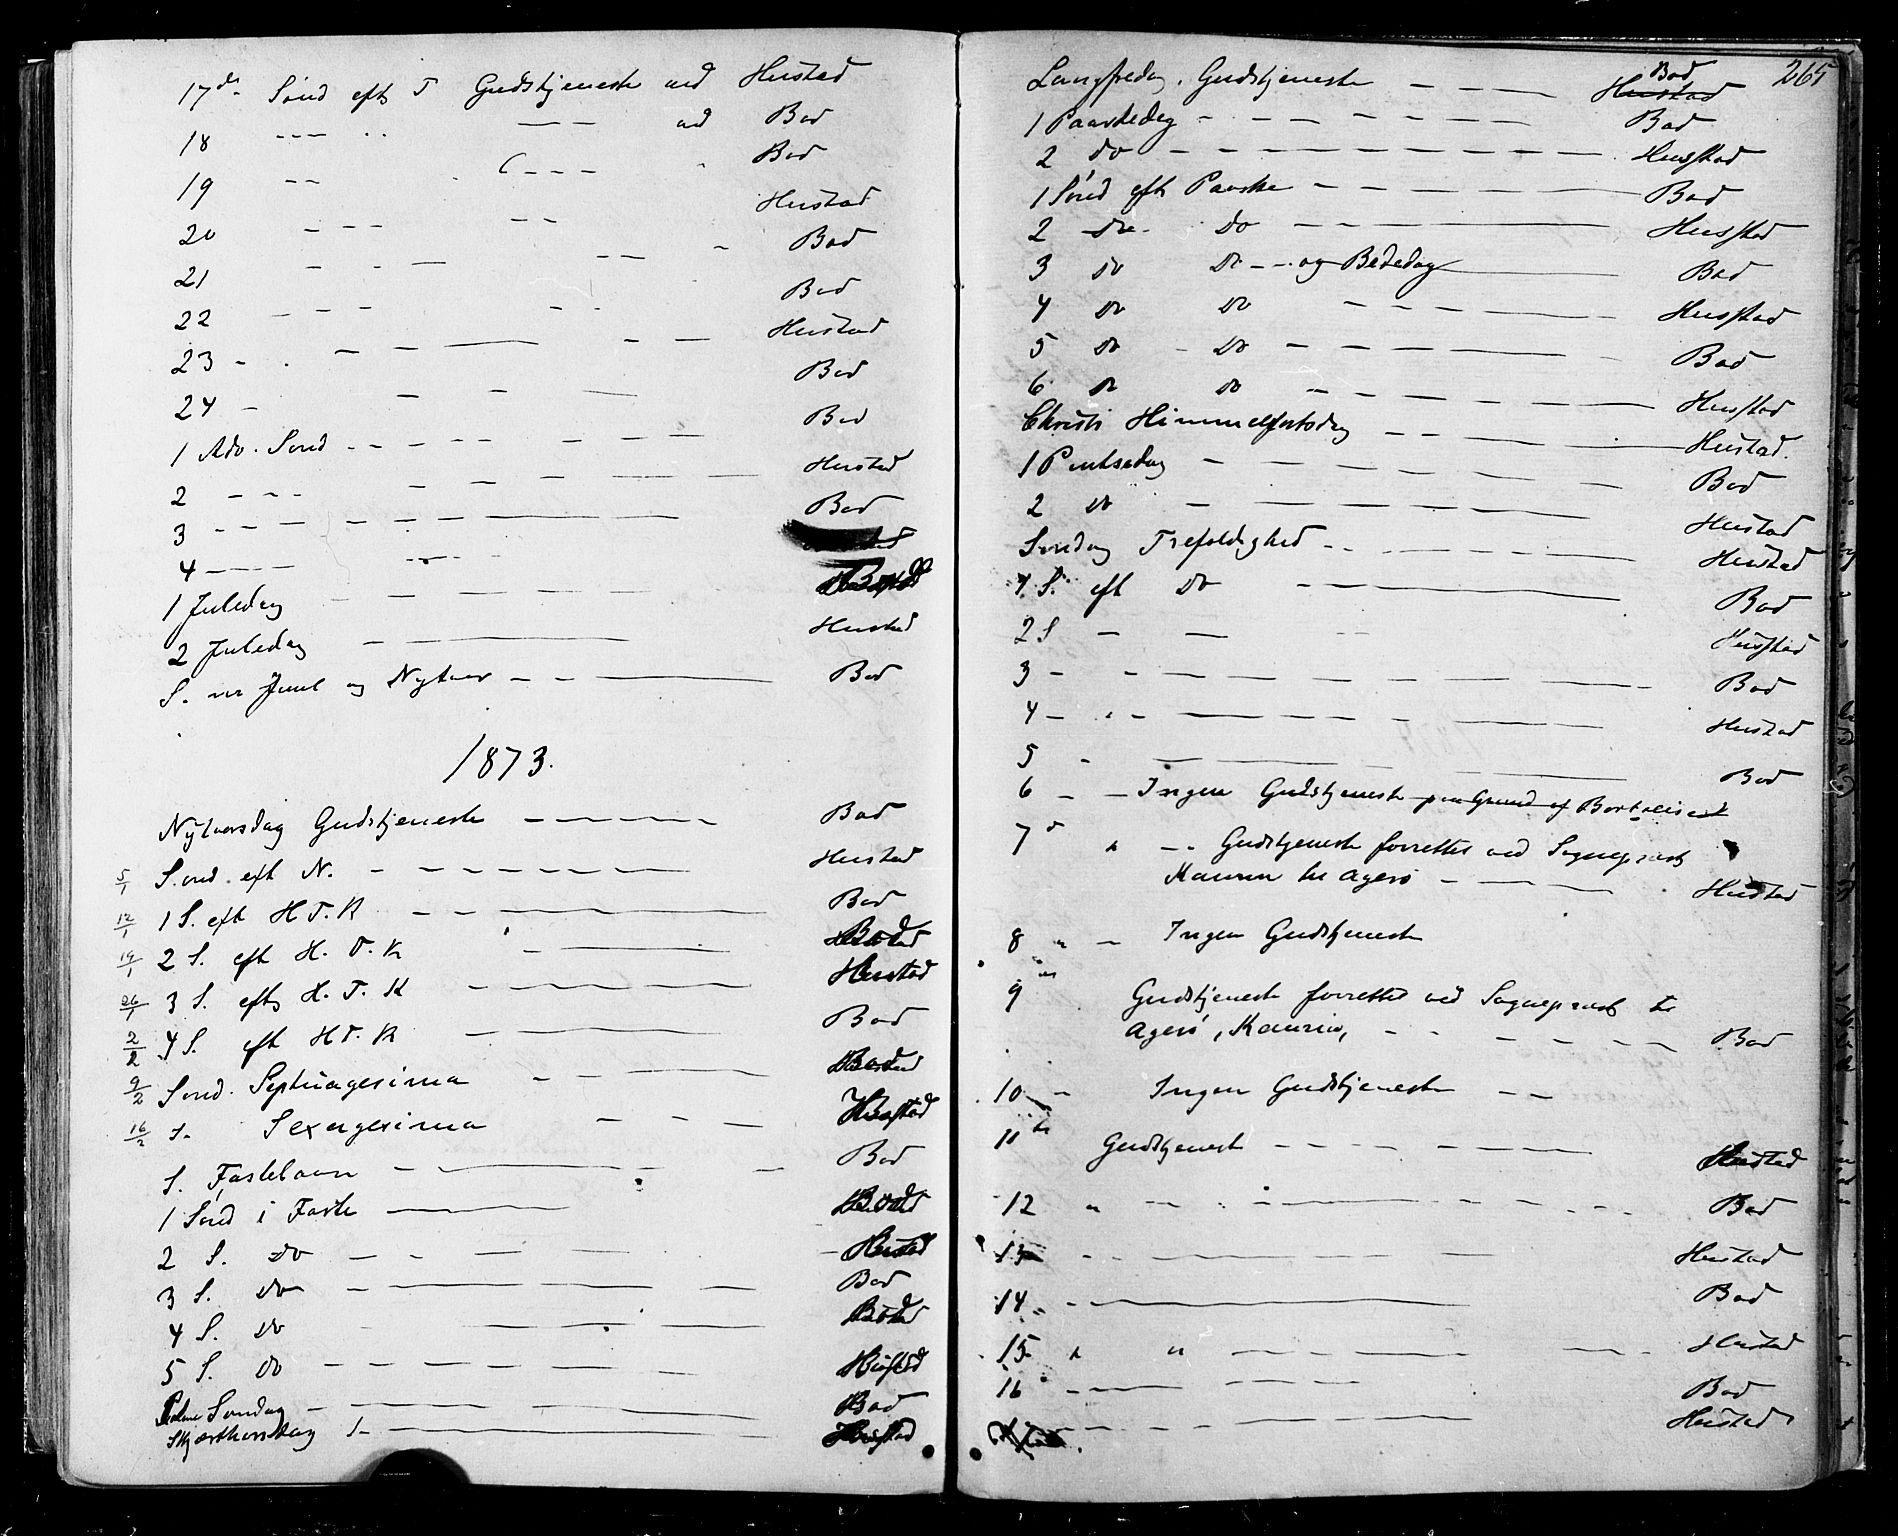 17de Sønd eft T Gudstjeneste ved Hustad
18 --- -- --- ved Bod
19 -- --- Bod
20 --- -- Hustad
21 - - - -- - Bod
22 --- - - Bod
23 - - - - - - Hustad
24 - - - - Bod
1 Adv. Sønd - - - - - - Bod
2 - - - - - - - - Hustad
3 - - - - - - - Bod
4 - - - - -
1 Juledag - - - - -
2 Juledag - - - Hustad
S. m Juul og Nytaar - - - Bod
1873.
Nytaarsdag Gudstjeneste - - - - - Bod
5/1 Sønd. eft N. - - - - - - Hustad
12/1 1 S. eft H T. K - - - - - Bod
19/1 2 S. eft H. T. K - - - Bod
26/1 3 S. eft H. T. K - - - - Hustad
2/2 4 S. eft H T. K - - - - Bod
9/2 Sønd. Septuagesima - - - -
16/2 S. Sexagesima - - - Hustad
S. Fastelavn - - - - Bod
1 Sønd i Faste - - - Bod
2 S. Do - - - - - Hustad
3 S. Do - - - - - Bod
4 S. Do - - - - Bod
5 S. Do - - - - - - Hustad
Palme Søndag - - - - - Bod
Skjærthorsdag - - - Hustad
265
Langfredag. Gudstjeneste - - - - Hustad Bod
1 Paaskedag - - - - - - - Bod
2 Do - - - - - - - - - Hustad
1 Sønd eft Paaske - - - - - Bod
2 Do Do - - - - - Hustad
3 Do Do - - og Bededag - Bod
4 Do Do - - - - - Hustad
5 Do - Do - - - - - - Bod
6 Do Do - - - - - - Hustad
Christi Himmelfartsdag - - - - Hustad.
1 Pintsedag - - - - - - - Bod
2 Do - - - - - Hustad
Søndag Trefoldighed - - - - - Hustad
1. S. eft Do - - - - Bod
2 S - - -- Hustad
3 - - - - - - - - Bod
4 - - - - - - - - Hustad
5 - - - - - - Bod
6 - - Ingen Gudstjeneste paa Grund af Bortreise
7 " - - Gudstjeneste forrettet ved Sognepræst
Kaurin til Agerø - - - Hustad
8 " - Ingen Gudstjeneste
9 Gudstjeneste forrettet ved Sognepræst til
Agerø, Kaurin, - - - - - - Bod
10 - Ingen Gudstjeneste - -
11te Gudstjeneste - - - - - - Hustad
12 " - - - - - - - - Bod
13 - - - - - - Hustad
14 - - - - Bod
15 " " - - - - - Hustad
16 - - - - - - - Bod
- - - - - - Hustad